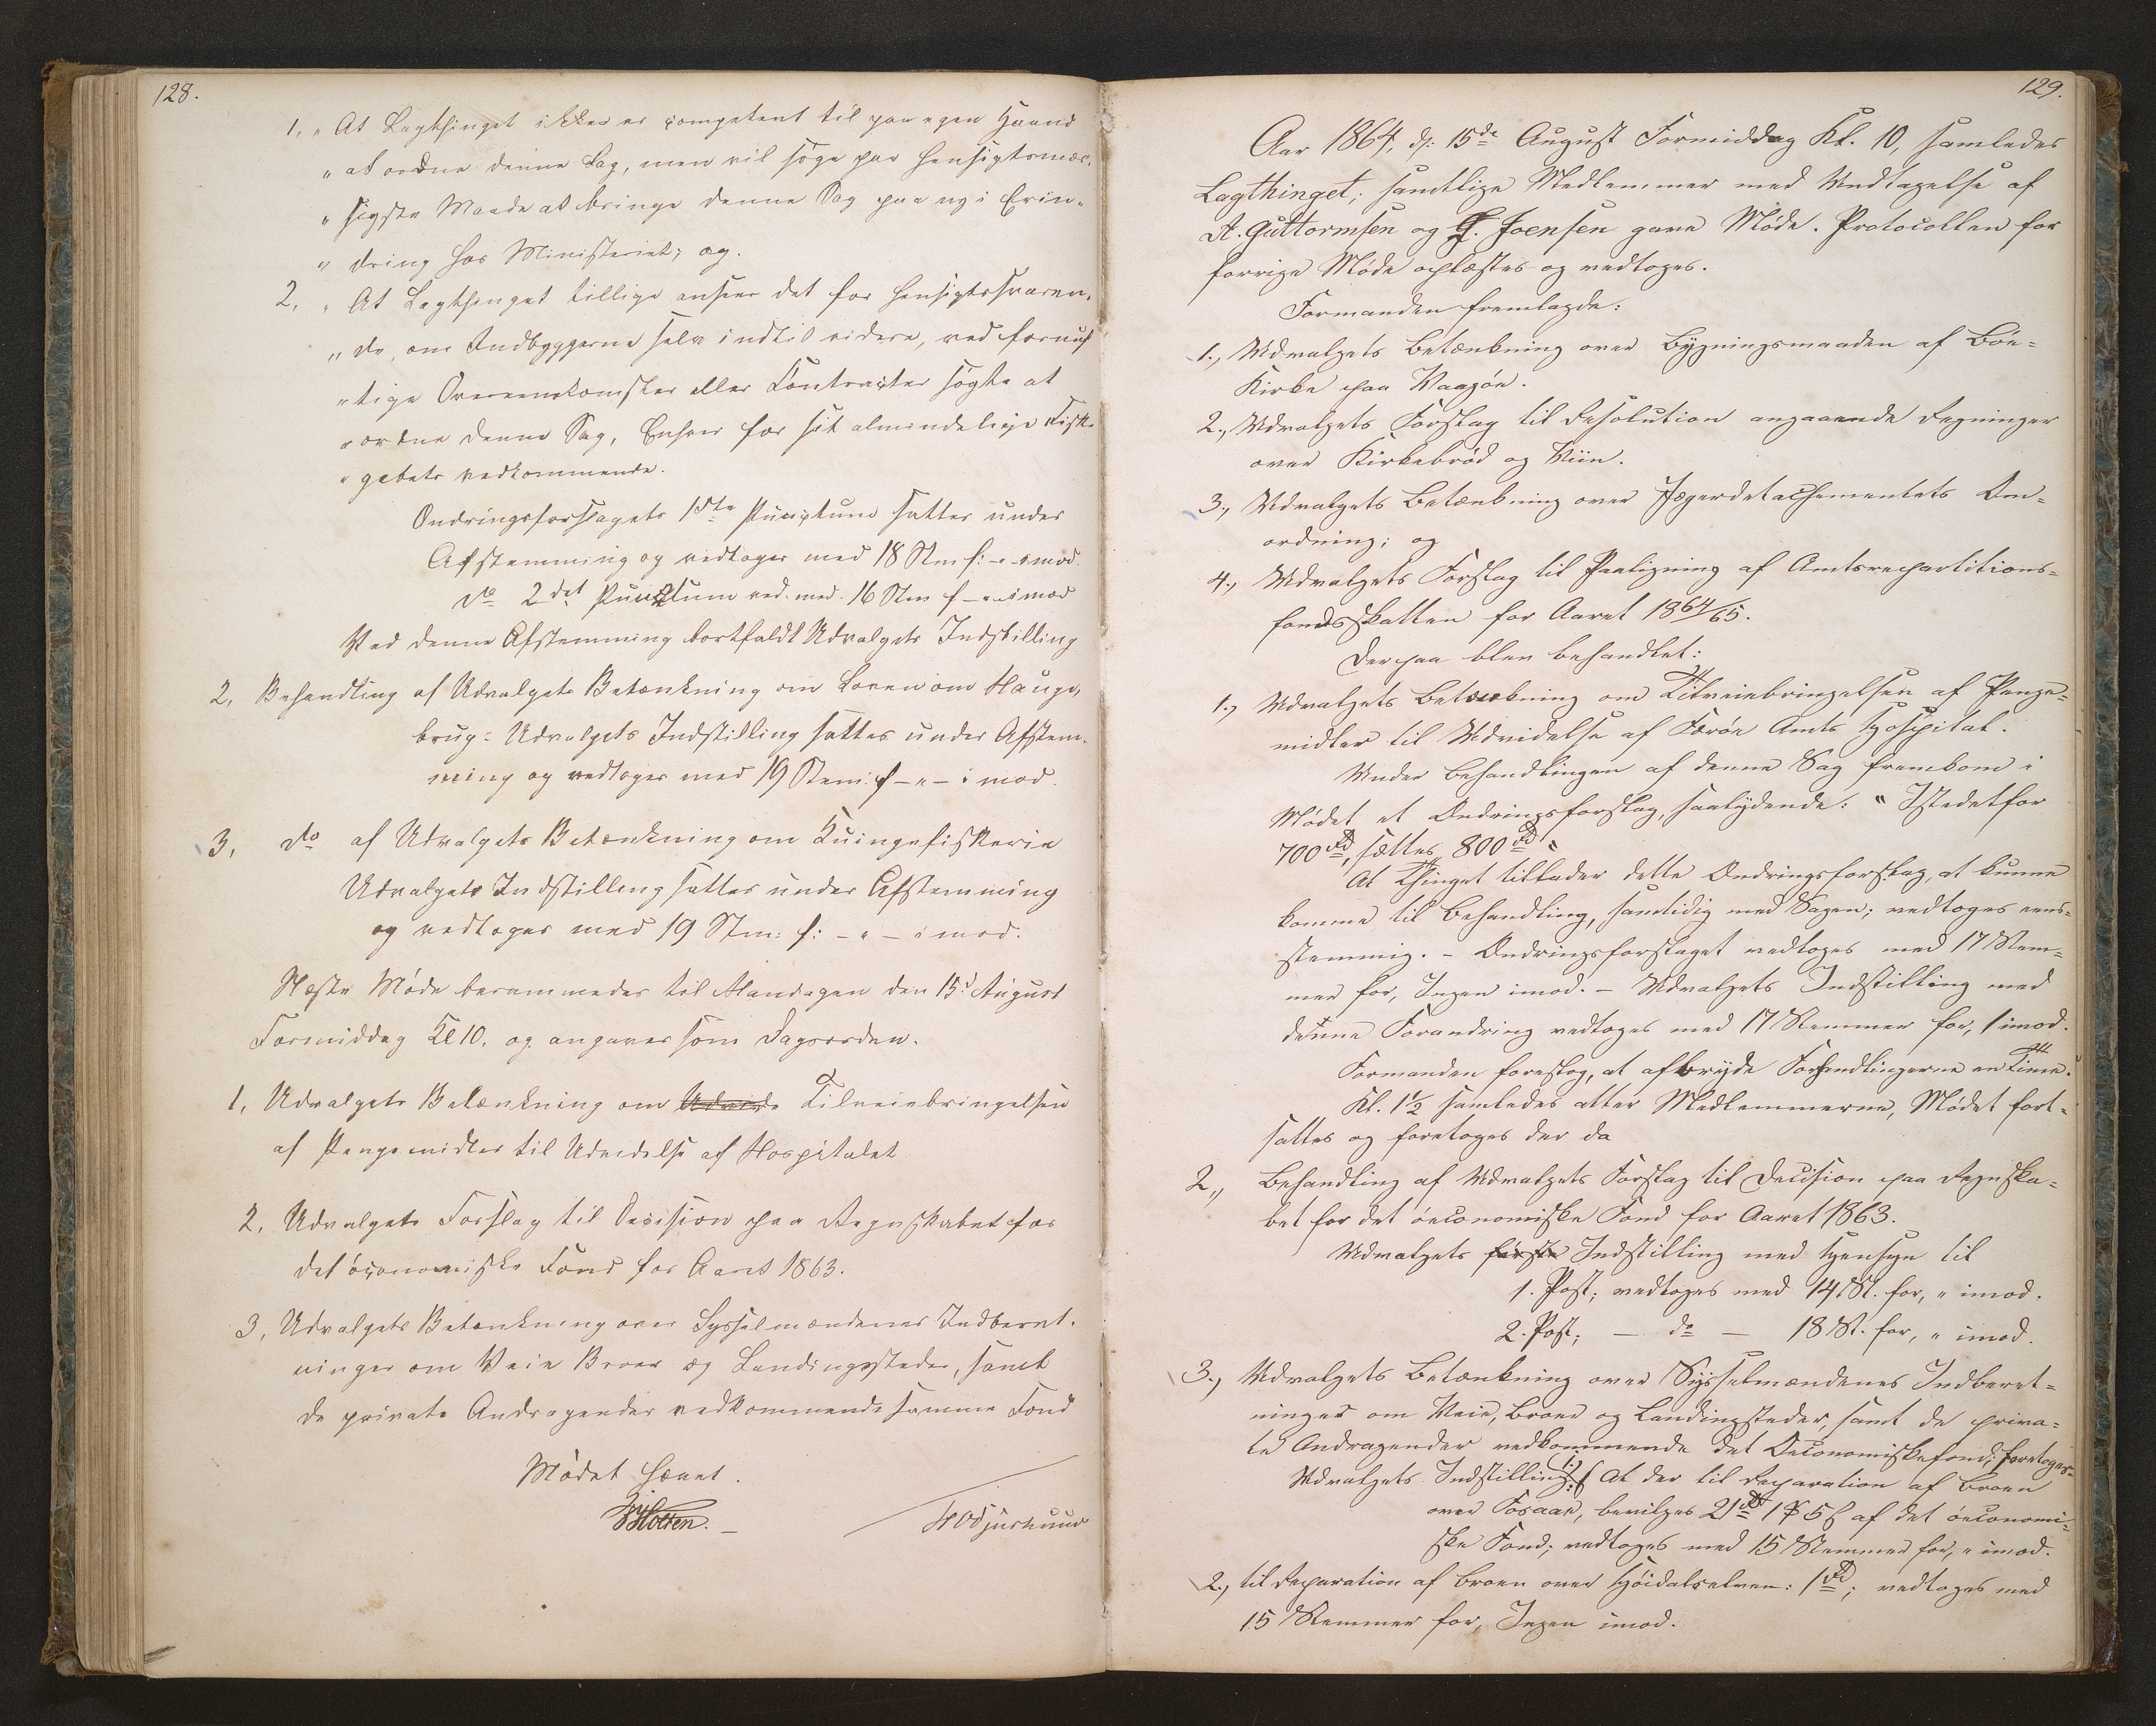 128.
1, „ At Lagthinget ikke er competent til paa egen Haand
„ at ordne denne Sag, men vil søge paa hensigtsmæs-
„ sigste Maade at bringe denne Sag paa ny i Erin-
„ dring hos Ministeriet; og.
2, „ At Lagthinget tillige anseer det for hensigtssvaren-
„ de, om Indbyggerne selv indtil videre, ved fornuf
„ tige Overeenskomster eller Contracter søgte at
„ ordne denne Sag, Enhver for sit almindelige Fiske
„ gebets vedkommende.
Ændringsforslagets 1ste Punctum sattes under
Afstemming og vedtoges med 18 Stm f: - „ imod.
do 2det Punctum ved. med. 16 Stm f - „ - imod
Ved denne Afstemming bortfaldt Udvalgets Indstilling
2, Behandling af Udvalgets Betænkning om Loven om Hauge,
brug: Udvalgets Indstilling sattes under Afstem-
ning og vedtoges med 19 Stem: f - „ - imod.
3, do af Udvalgets Betænkning om Kuingefiskerie
Udvalgets Indstilling sattes under Afstemming
og vedtoges med 19 Stm: f: - „ - imod.
Næste Møde berammedes til Mandagen den 15d August
Formiddag Kl 10. og angaves som Dagsorden.
1, Udvalgets Betænkning om Udvide Tilveiebringelsen
af Pengemidler til Udvidelse af Hospitalet
2, Udvalgets Forslag til Decision paa Regnskabet for
det øconomiske Fond for Aaret 1863.
3, Udvalgets Betænkning over Sysselmændenes Indberet-
ninger om Veie Broer og Landingssteder, samt
de private Andragender vedkommende samme Fond
Mødet hævet.
Holten.
HO Djurhuus
129.
Aar 1864, d: 15de August Formiddag Kl. 10, samledes
Lagthinget; samtlige Medlemmer med Undtagelse af
A. Guttormsen og G. Joensen gave Møde. Protocollen for
forrige Møde oplæstes og vedtoges.
Formanden fremlagde:
1., Udvalgets Betænkning over Bygningsmaaden af Böe-
Kirke paa Vaagöe.
2., Udvalgets Forslag til Resolution angaaende Regninger
over Kirkebrød og Viin.
3., Udvalgets Betænkning over Jægerdetachementets Om-
ordning; og
4., Udvalgets Forslag til Paaligning af Amtsrepartitions-
fondsskatten for Aaret 1864/65.
Derpaa blev behandlet:
1., Udvalgets Betænkning om Tilveiebringelsen af Penge-
midler til Udvidelse af Færöe Amts Hospital.
Under Behandlingen af denne Sag fremkom i
Mödet et Ændringsforslag, saalydende: „ Istedetfor
700 Rd, sættes 800 Rd “
At Thinget tillader dette Ændringsforslag, at kunne
komme til Behandling, samtidig med Sagen; vedtoges eens-
stemmig. - Ændringsforslaget vedtoges med 17 Stem-
mer for, Ingen imod. - Udvalgets Indstilling med
denne Forandring vedtoges med 17 Stemmer for, 1 imod.
Formanden foreslog, at afbryde Forhandlingerne en Time.
Kl. 1½ samledes atter Medlemmerne, Mödet fort-
sattes og foretoges der da
2., Behandling af Udvalgets Forslag til Decision paa Regnska-
bet for det öeconomiske Fond for Aaret 1863.
Udvalgets første Indstilling med Hensyn til
1. Post; vedtoges med 14 St. for, „ imod.
2. Post; - do - 18 St. for, „ imod.
3., Udvalgets Betænkning over Sysselmændenes Indberet-
ninger om Veie, Broer og Landingsteder, samt de priva-
te Andragender vedkommende det Oeconomiskefond; foretoges.
Udvalgets Indstilling: 1., At der til Reparation af Broen
over Fosaae, bevilges 21 Rd 1 ꝑ 5 ß af det öeconomi-
ske Fond; vedtoges med 15 Stemmer for, „ imod.
2., til Reparation af Broen over Höidalselven: 1 Rd; vedtoges med
15 Stemmer for, Ingen imod.